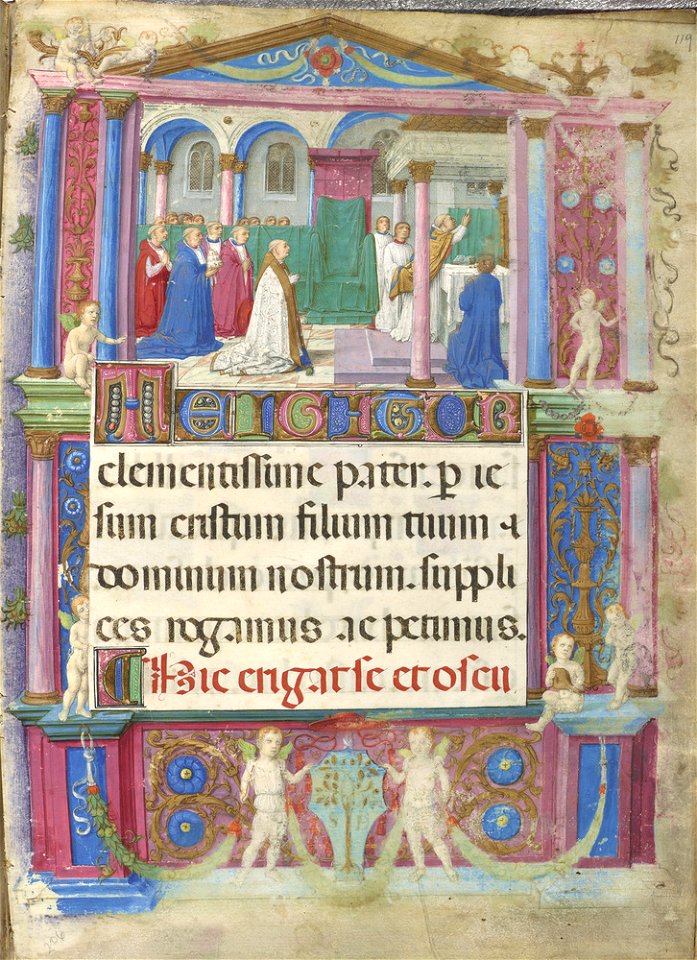 119
TEIGITUR
clementissime pater. ꝑ ie
sum cristum filium tuum ⁊
dominum nostrum. suppli
ces rogamus ac petimus.
Hic erigat se et oscu